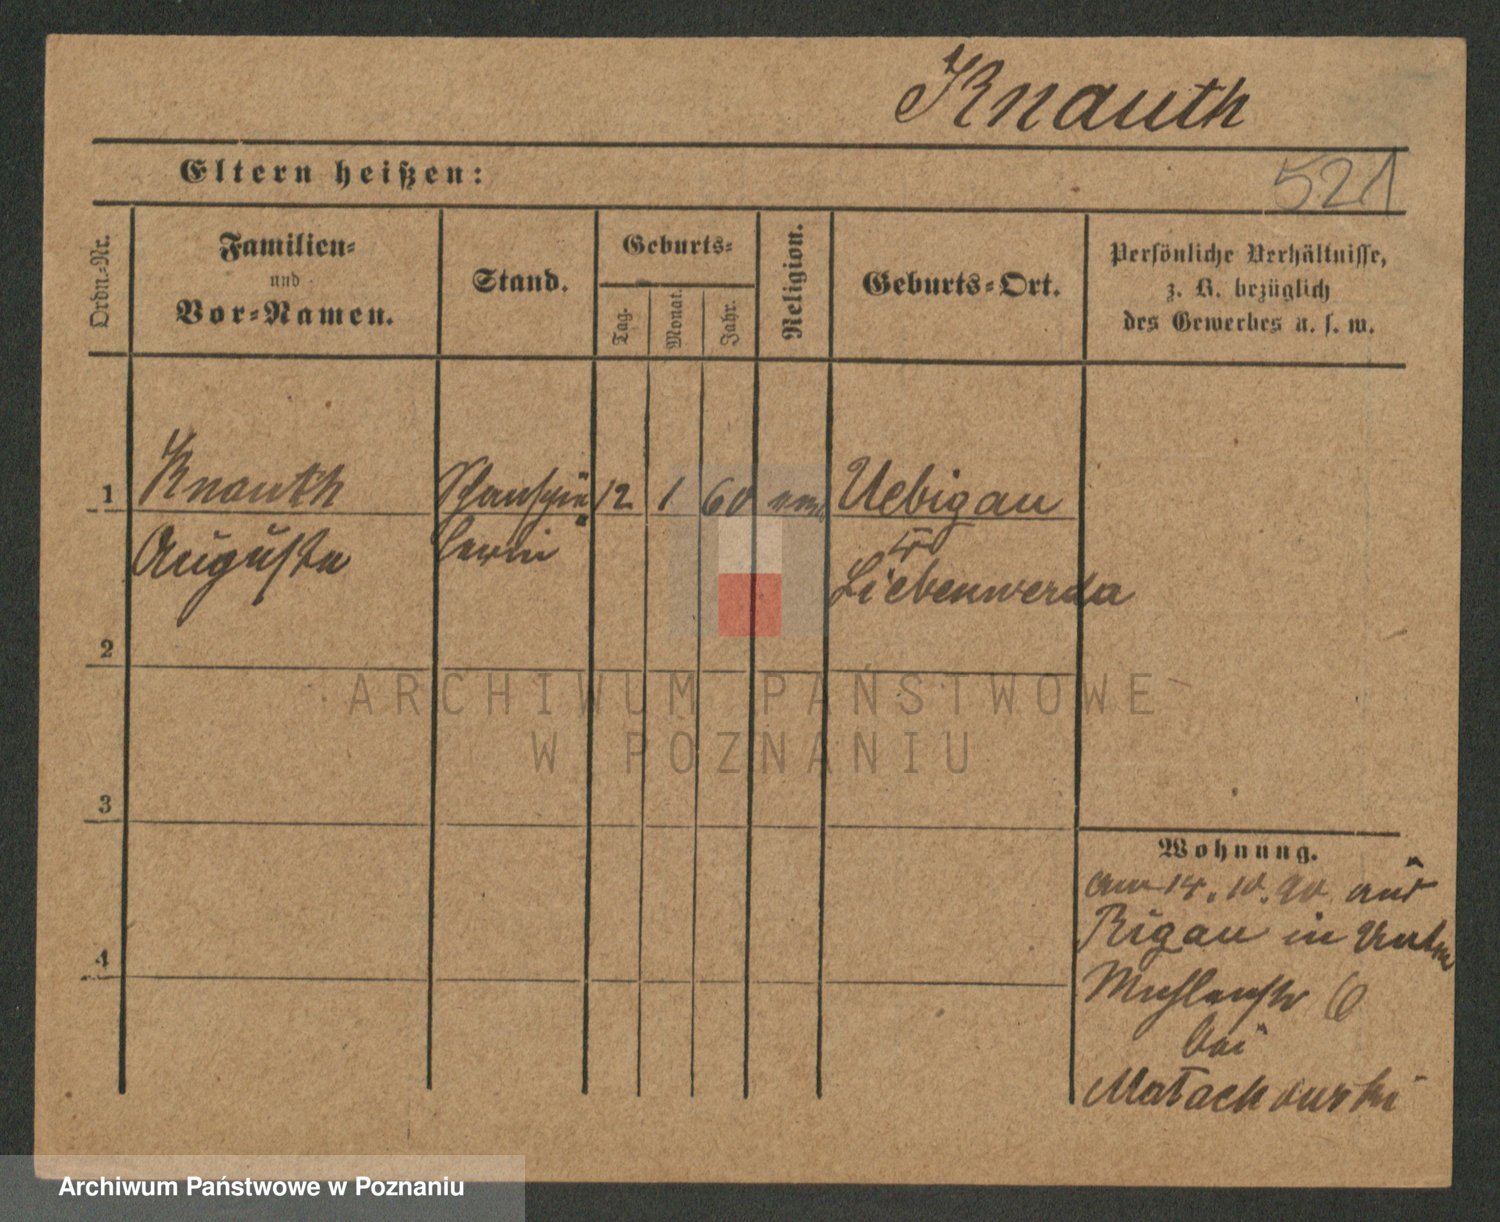 Knauth
Eltern heißen:
521
Ordn.-Nr.
Familien-
und
Vor-Namen.
Stand.
Geburts-
Tag.
Monat.
Jahr.
Religion.
Geburts-Ort.
Persönliche Verhältnisse,
z. B. bezüglich
des Gewerbes u. s. w.
1
Knauth
Schauspie
12
1
60
Uebigau
Auguste
lerin
Liebenwerda
2
ARCHIWUM PAŃSTWOWE
W POZNANIU
3
Wohnung.
am 14.10.90 aus
Rigau in Unter
4
Muhlenstr 6
bei
Matachowski
Archiwum Państwowe w Poznaniu